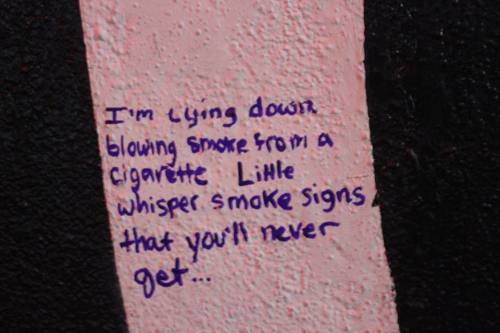 I'm Lying down
blowing smoke from a
cigarette Little
whisper smoke signs
that you'll never
get...